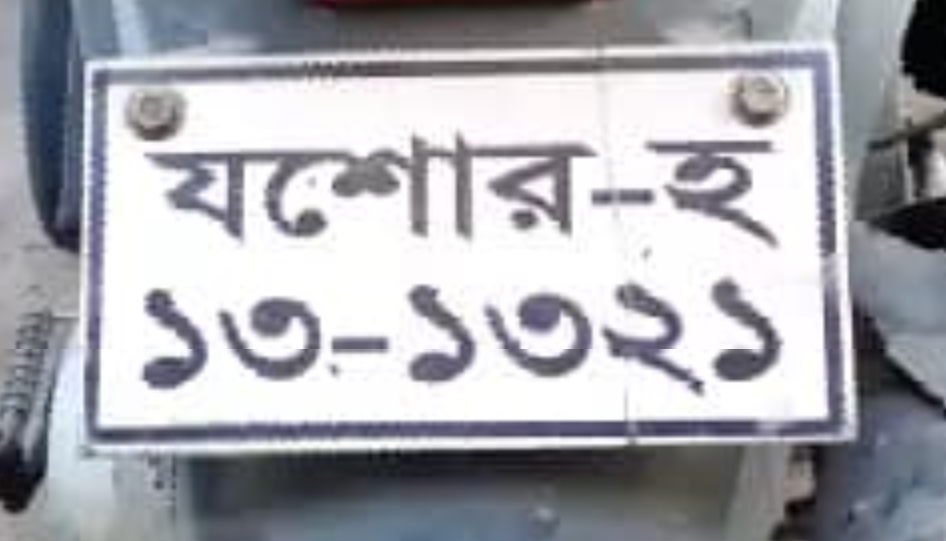 যশোর-হ
১৩-১৩২১